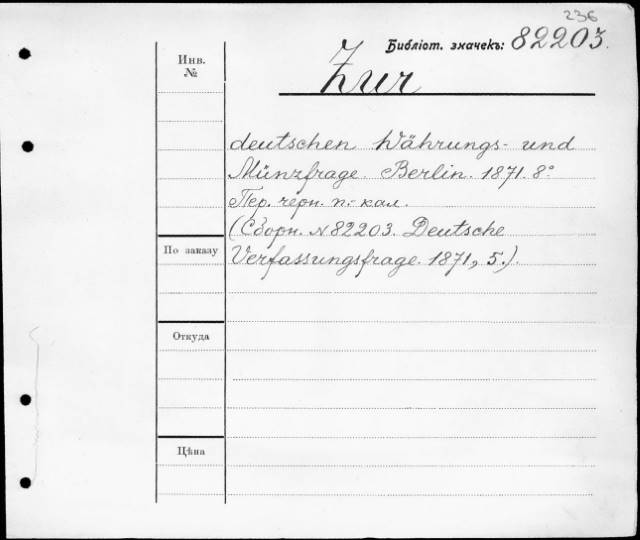 236
Библіот. значекъ: 82203.
Инв.
№
Zur
deutschen Währungs- und
Münzfrage. Berlin. 1871. 8°
Пер. черн. п.-кал.
(Сборн. N 82203. Deutsche
По заказу
Verfassungsfrage. 1871, 5.).
Откуда
Цѣна